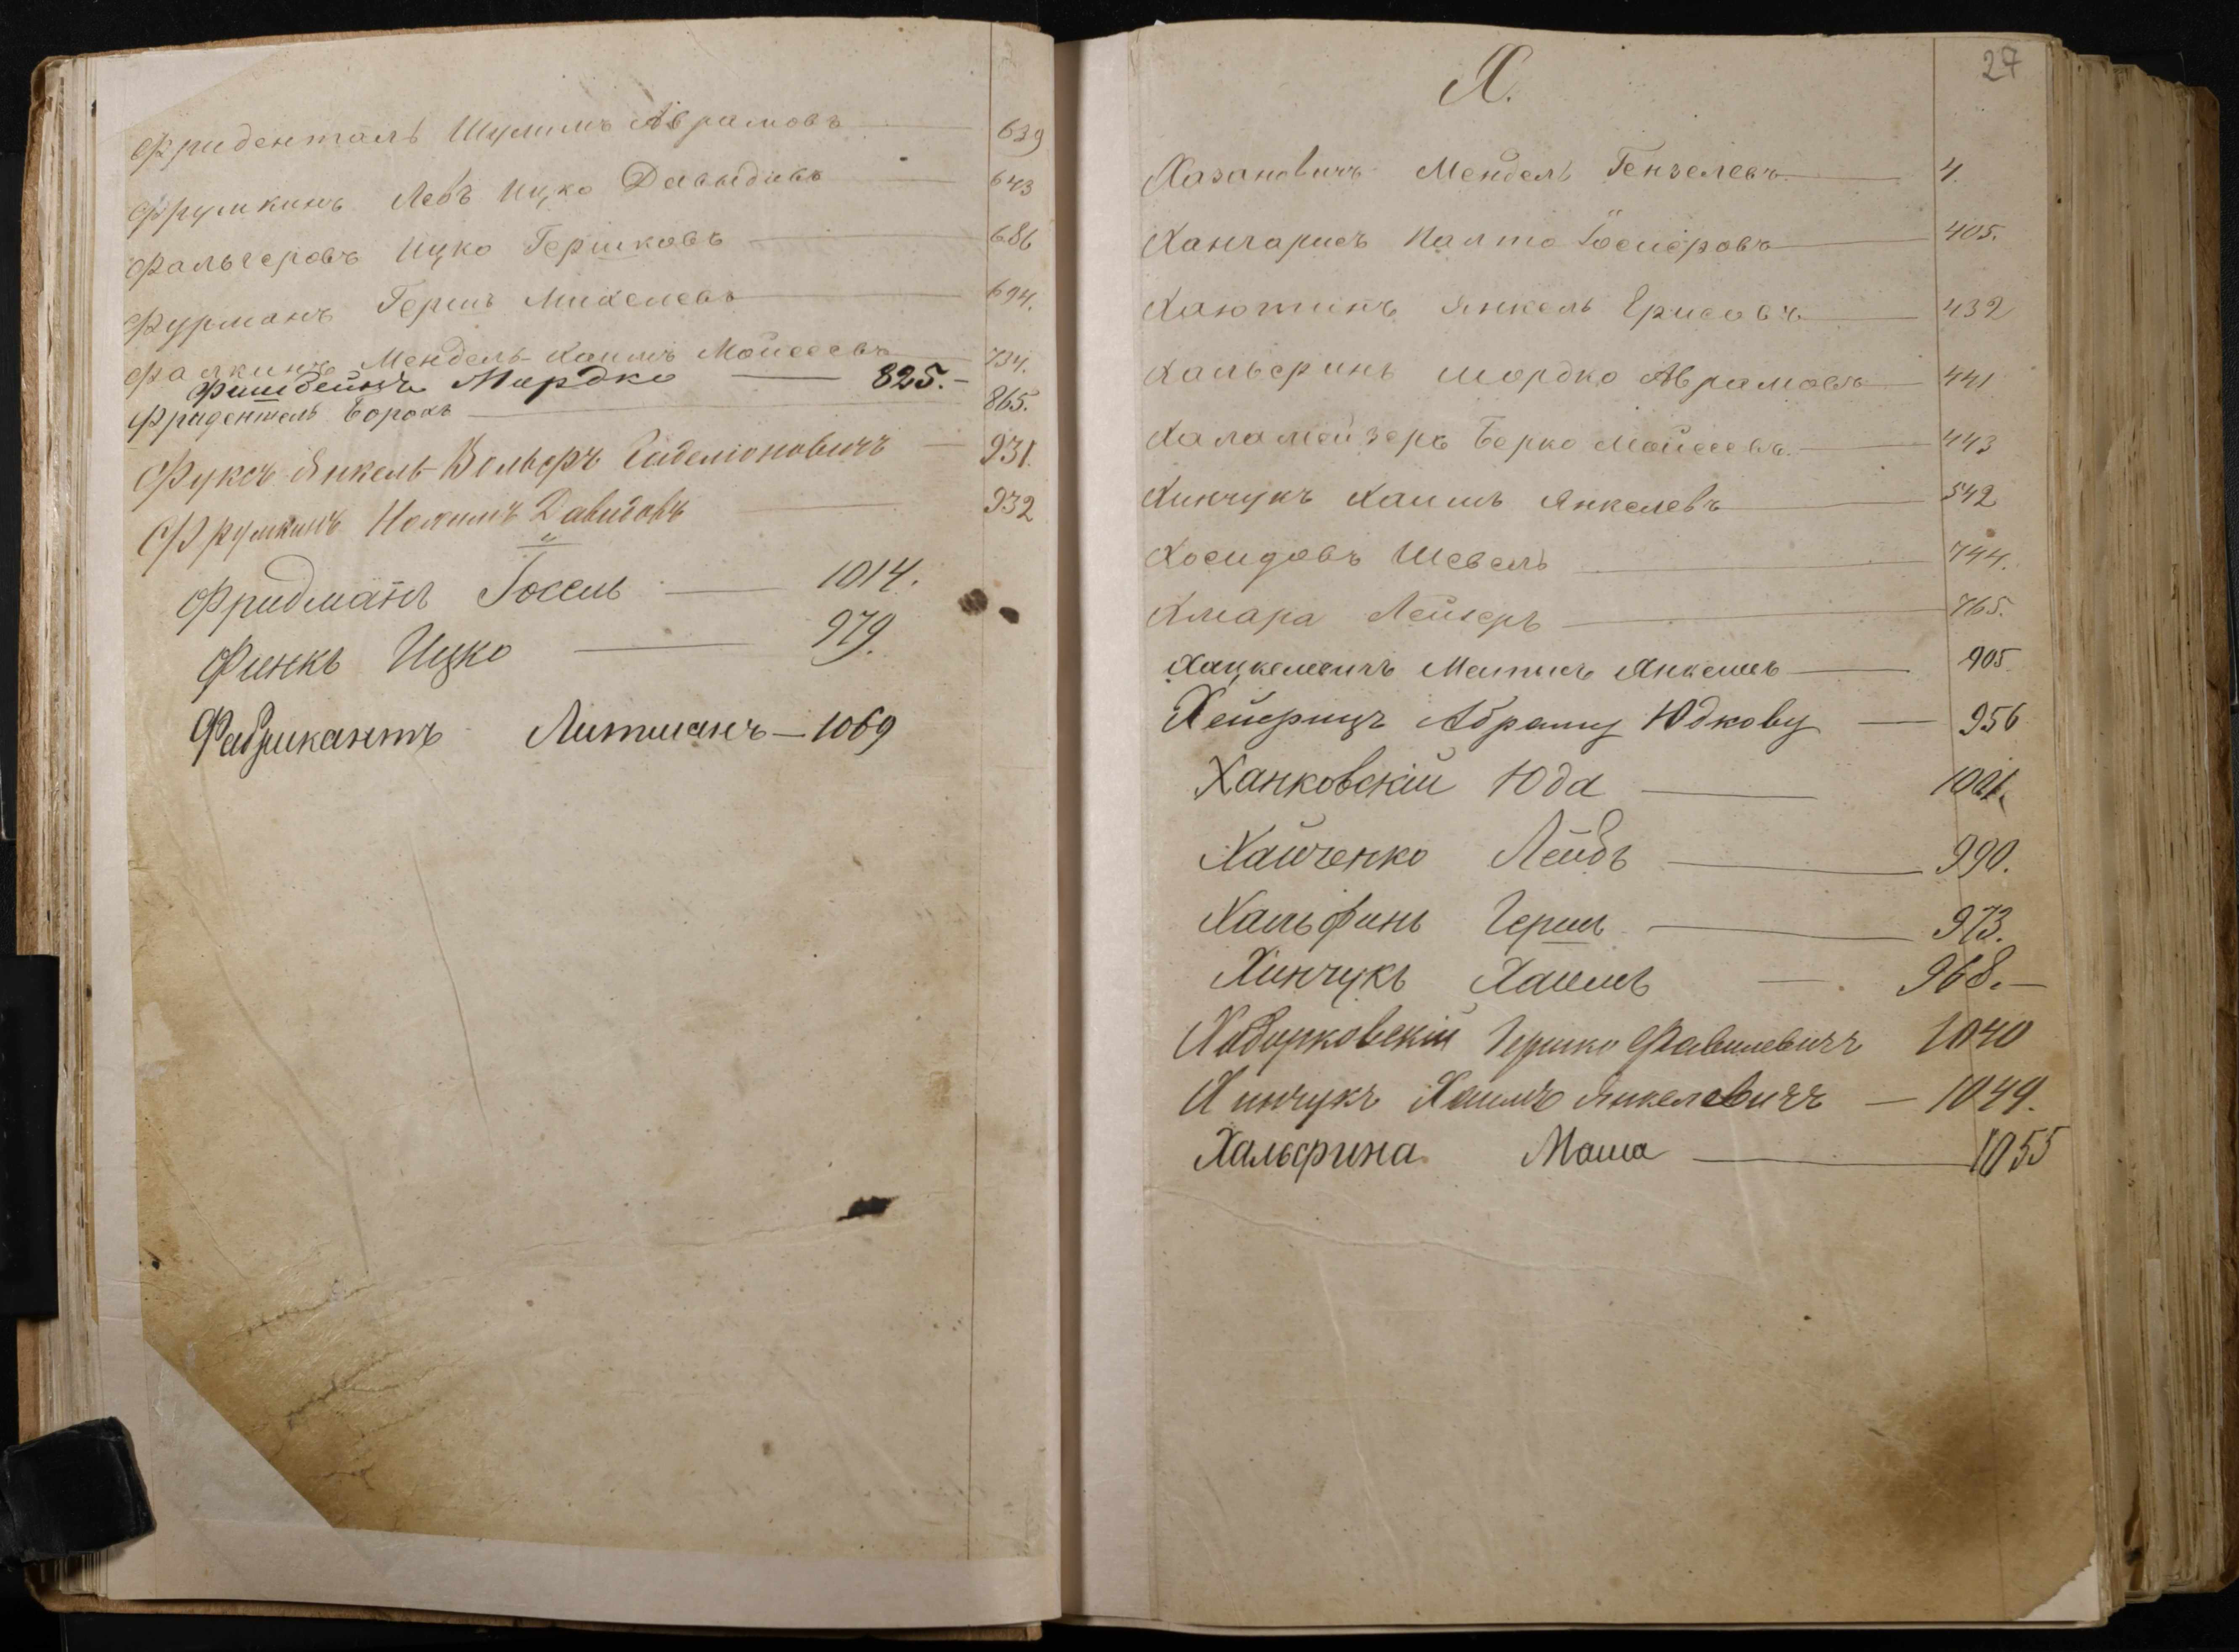 Фриденталь Шулимъ Аврамовъ 639
Фрумкинъ Лебъ Ицко Давыдивъ 643
Фальчеровъ Ицко Гершковъ 686
Фурманъ Герш Михелевъ 694.
Фалкинъ Мендель-Хаимъ Мойсеевъ 734.
Фишбейнъ Мордко — 825.-
Фриденталь Борохъ 865.
Фуксъ Янкель-Вольфъ — 931.
Фрумкинъ Нахимъ Давидовъ 932
Фридманъ Іоссель — 1014.
Финкъ Ицко — 979.
Фабрикантъ Литманъ — 1069
27
Х.
Хазановичъ Мендель Гензелевъ 4.
Ханчарисъ 405.
Хаютинъ Янкель 432
Хальфинъ Мордко Аврамовъ 441
Халамейзеръ Берко Мойсеевъ 443
Хинчукъ Хаимъ Янкелевъ 542
Хосидовъ Шевель 744.
Хмара Лейзеръ 765.
Хацкелевичъ Янкелевъ 905
Хейфицъ Абраму Юдкову — 956
Ханковскій Юда
Хайченко Лейбъ 990.
Хальфинъ Герш 973.
Хинчукъ Хаимъ — 968.-
Гершко 1040
Хинчукъ Хаимъ Янкелевичъ — 1049.
Хальфина Маша 1055